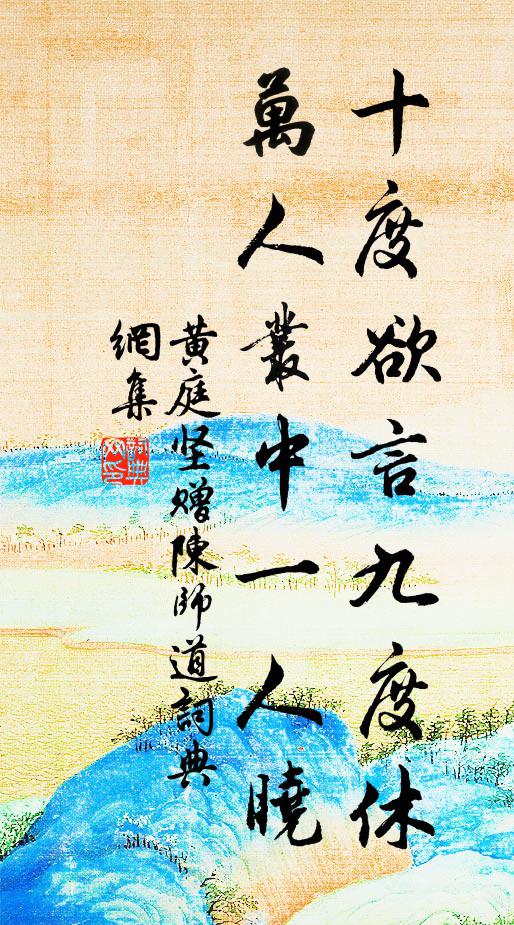 十度欲言九度休
萬人叢中一人曉
黄庭坚赠陳師道詞典
網集